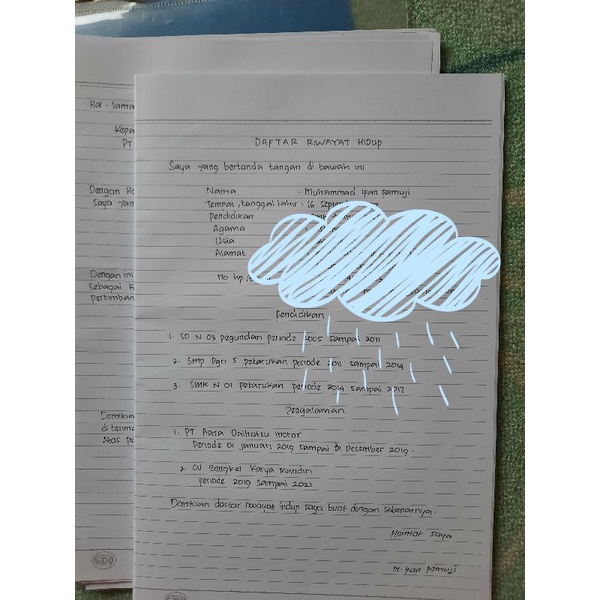 Hal : Lama
Kepa
PT
Dengan Ho
Saya yan
Dengan ini
Sebagai K
pertimban
Demikian
di berima
Atas pe
SIDU
DAFTAR RIWAYAT HIDUP
Saya yang bertanda tangan di bawah ini
Nama : Muhammad Ipan Pamuji
Tempat, tanggal lahir : 16 Sept
Pendidikan
Agama
Usia
Alamat
No Hp
Pendidikan
1. SD N 03 pegundan periode 2005 sampai 2011
2. Smp Pgri 5 petarukan periode sampai 2014
3. SMK N 01 petarukan periode 2014 sampai 2017
Pengalaman
1. PT Astra Daihatsu motor
Periode 01 januari 2019 sampai 31 Desember 2019.
2. CV Bengkel Karya Mandiri
periode 2019 sampai 2021
Demikian daftar riwayat hidup saya buat dengan sebenarnya.
Hormat saya
M. Ipan Pamuji
SIDU